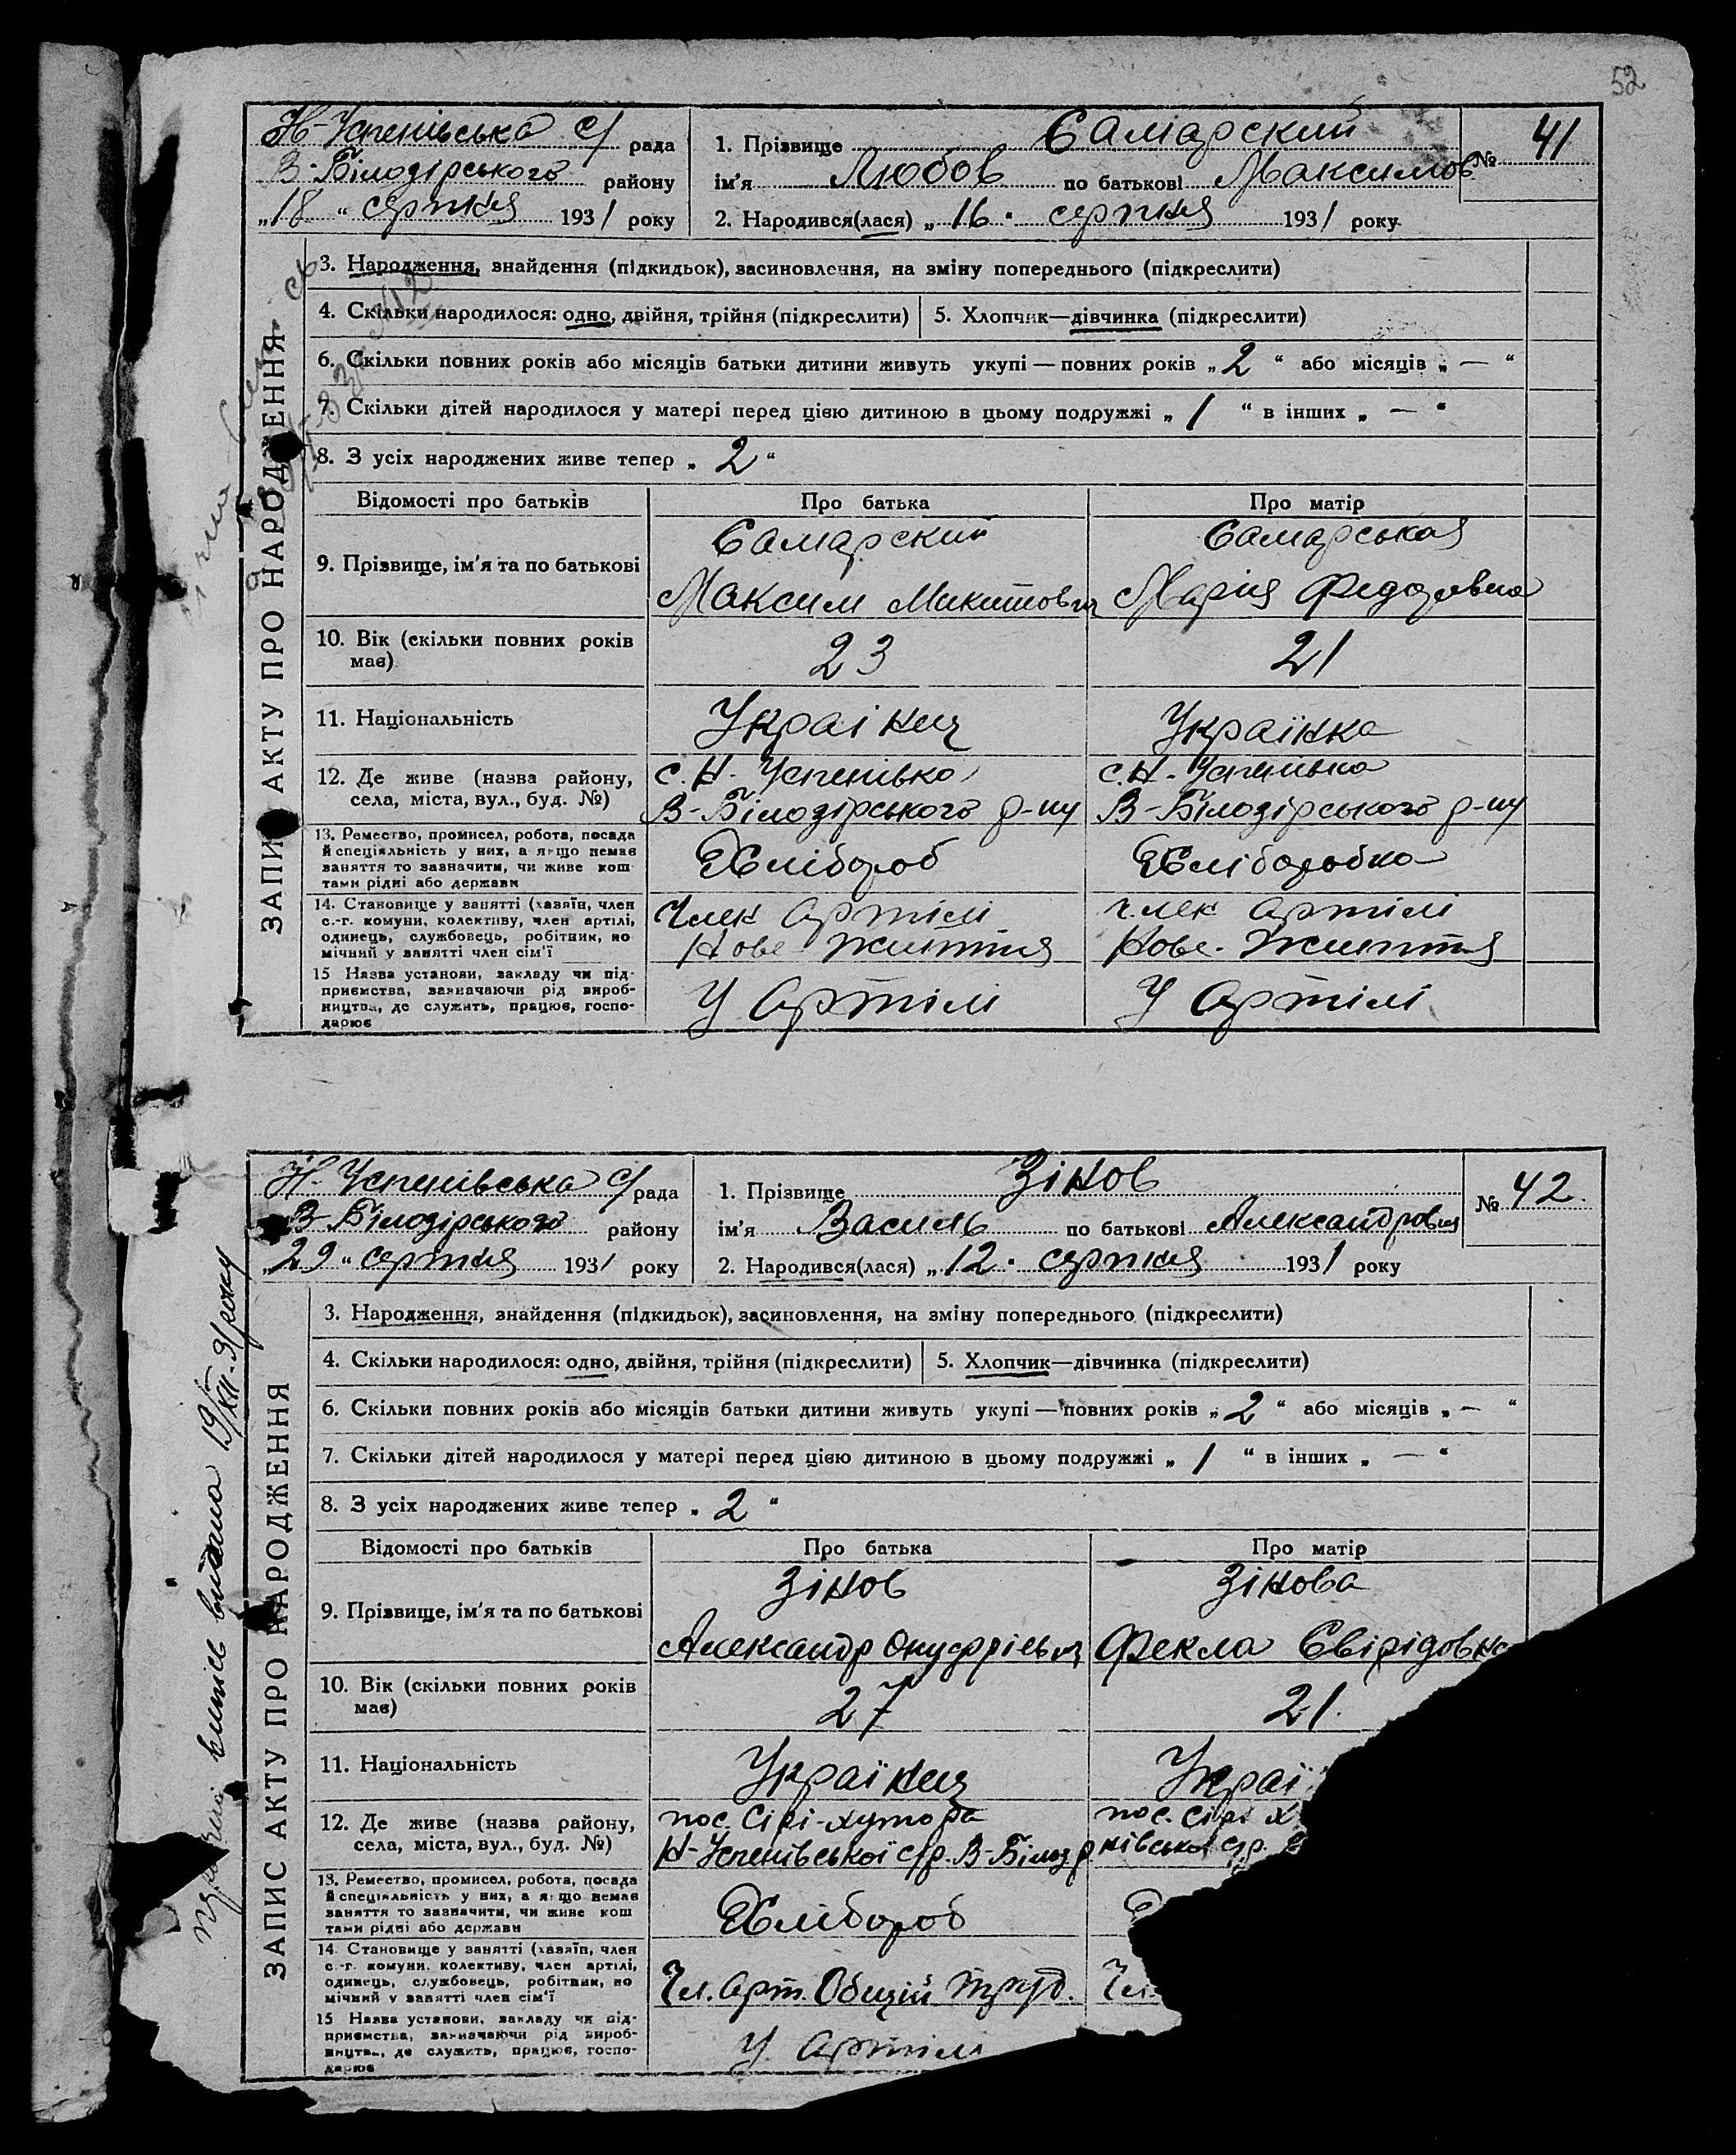 52
Н-Успенівська с/ рада
В-Білозірського району
„18" серпня 1931 року
1. Прізвище Самарский
ім'я Любов по батькові Максимов
№ 41
2. Народився(лася) „16" серпня 1931 року
ЗАПИС АКТУ ПРО НАРОДЖЕННЯ
3. Народження, знайдення (підкидьок), засиновлення, на зміну попереднього (підкреслити)
4. Скільки народилося: одно, двійня, трійня (підкреслити) 5. Хлопчик—дівчинка (підкреслити)
6. Скільки повних років або місяців батьки дитини живуть укупі — повних років „2" або місяців „—"
7. Скільки дітей народилося у матері перед цією дитиною в цьому подружжі „1" в інших „—"
8. З усіх народжених живе тепер „2"
Відомості про батьків Про батька Про матір
9. Прізвище, ім'я та по батькові
Самарский
Максим Микитович
Самарськая
Марія Федоровна
10. Вік (скільки повних років має)
23
21
11. Національність
Украінец
Украінка
12. Де живе (назва району, села, міста, вул., буд. №)
с. Н-Успенівка
В-Білозірського р-ну
с. Н-Успенівка
В-Білозірського р-ну
13. Ремество, промисел, робота, посада
й спеціяльність у них, а якщо немає
заняття то зазначити, чи живе кош
тами рідні або держави
Хлібороб
Хлібороbка
14. Становище у занятті (хазяїн, член
с.-г. комуни, колективу, член артілі,
одинець, службовець, робітник, по
мічний у занятті член сім'ї
Член Артілі
Нове Життя
Член Артілі
Нове-Життя
15 Назва установи, закладу чи під-
приємства, зазначаючи рід вироб-
ництва, де служить, працює, госпо-
дарює
У Артілі
У Артілі
Н-Успенівська с/ рада
В-Білозірського району
„29" серпня 1931 року
1. Прізвище Зінов
ім'я Василь по батькові Александрович
№ 42.
2. Народився(лася) „12" серпня 1931 року
ЗАПИС АКТУ ПРО НАРОДЖЕННЯ
видана 19/XII-31 року
3. Народження, знайдення (підкидьок), засиновлення, на зміну попереднього (підкреслити)
4. Скільки народилося: одно, двійня, трійня (підкреслити) 5. Хлопчик—дівчинка (підкреслити)
6. Скільки повних років або місяців батьки дитини живуть укупі — повних років „2" або місяців „—"
7. Скільки дітей народилося у матері перед цією дитиною в цьому подружжі „1" в інших „—"
8. З усіх народжених живе тепер „2"
Відомості про батьків Про батька Про матір
9. Прізвище, ім'я та по батькові
Зінов
Александр Онуфріевич
Зінова
Фекла Свірідовна
10. Вік (скільки повних років має)
27
21.
11. Національність
Українец
Украї
12. Де живе (назва району, села, міста, вул., буд. №)
пос. Сірі-хутора
Н-Успенівської с/р. В-Білоз р.
пос. Сірі х
нівської с/р.
13. Ремество, промисел, робота, посада
й спеціяльність у них, а якщо немає
заняття то зазначити, чи живе кош
тами рідні або держави
Хлібороб
14. Становище у занятті (хазяїн, член
с.-г. комуни, колективу, член артілі,
одинець, службовець, робітник, по
мічний у занятті член сім'ї
Чл. Арт. Общій труд.
Чл.
15 Назва установи, закладу чи під-
приємства, зазначаючи рід вироб-
ництва, де служить, працює, госпо-
дарює
У Артілі